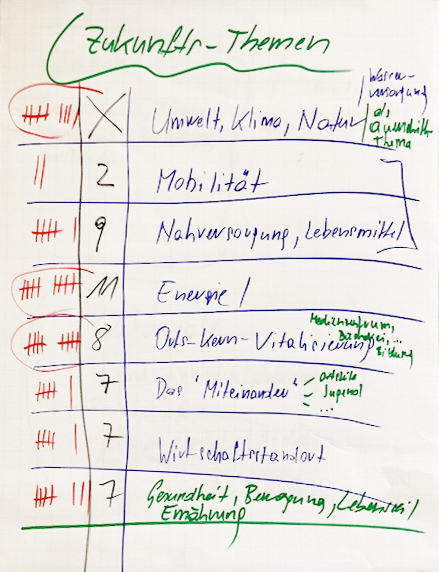 Zukunfts-Themen
Wasser-
versorgung
als
Querschnitt
Thema
X Umwelt, Klima, Natur
2 Mobilität
9 Nahversorgung, Lebensmittel
11 Energie /
Medizinzentrum,
Bäckerei, ...
Bildung
8 Orts-Kern-Vitalisierung
7 Das "Miteinander"
Ortsteile
Jugend
...
7 Wirtschaftsstandort
7 Gesundheit, Bewegung, Lebensstil
Ernährung